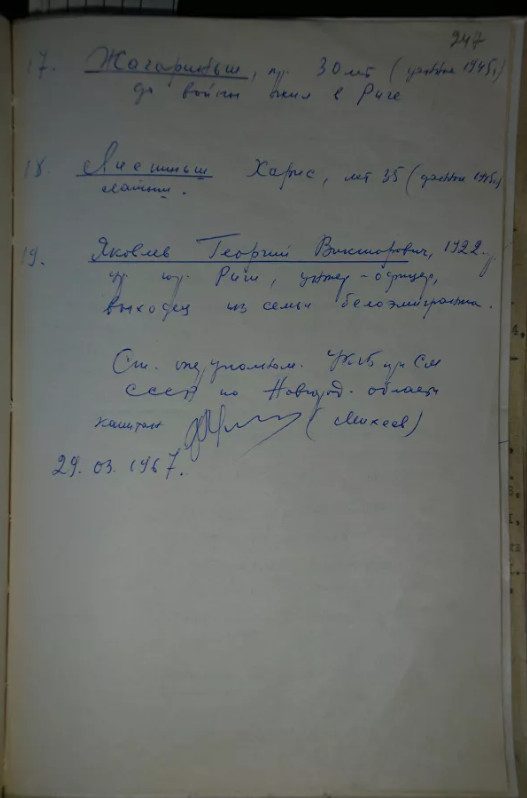 247
17. Жагариньш, пр. 30 лет (данные 1945г.)
до войны жил в Риге
18. Лиепиньш Харис, лет 35 (данные 1945г.)
латыш.
19. Яковлев Георгий Викторович, 1922 г.
ур. гор. Риги, унтер-офицер,
выходец из семьи белоэмигранта.
Ст. оперуполном. УКГБ при СМ
СССР по Новгород. области
капитан (Михеев)
29.03.1967.